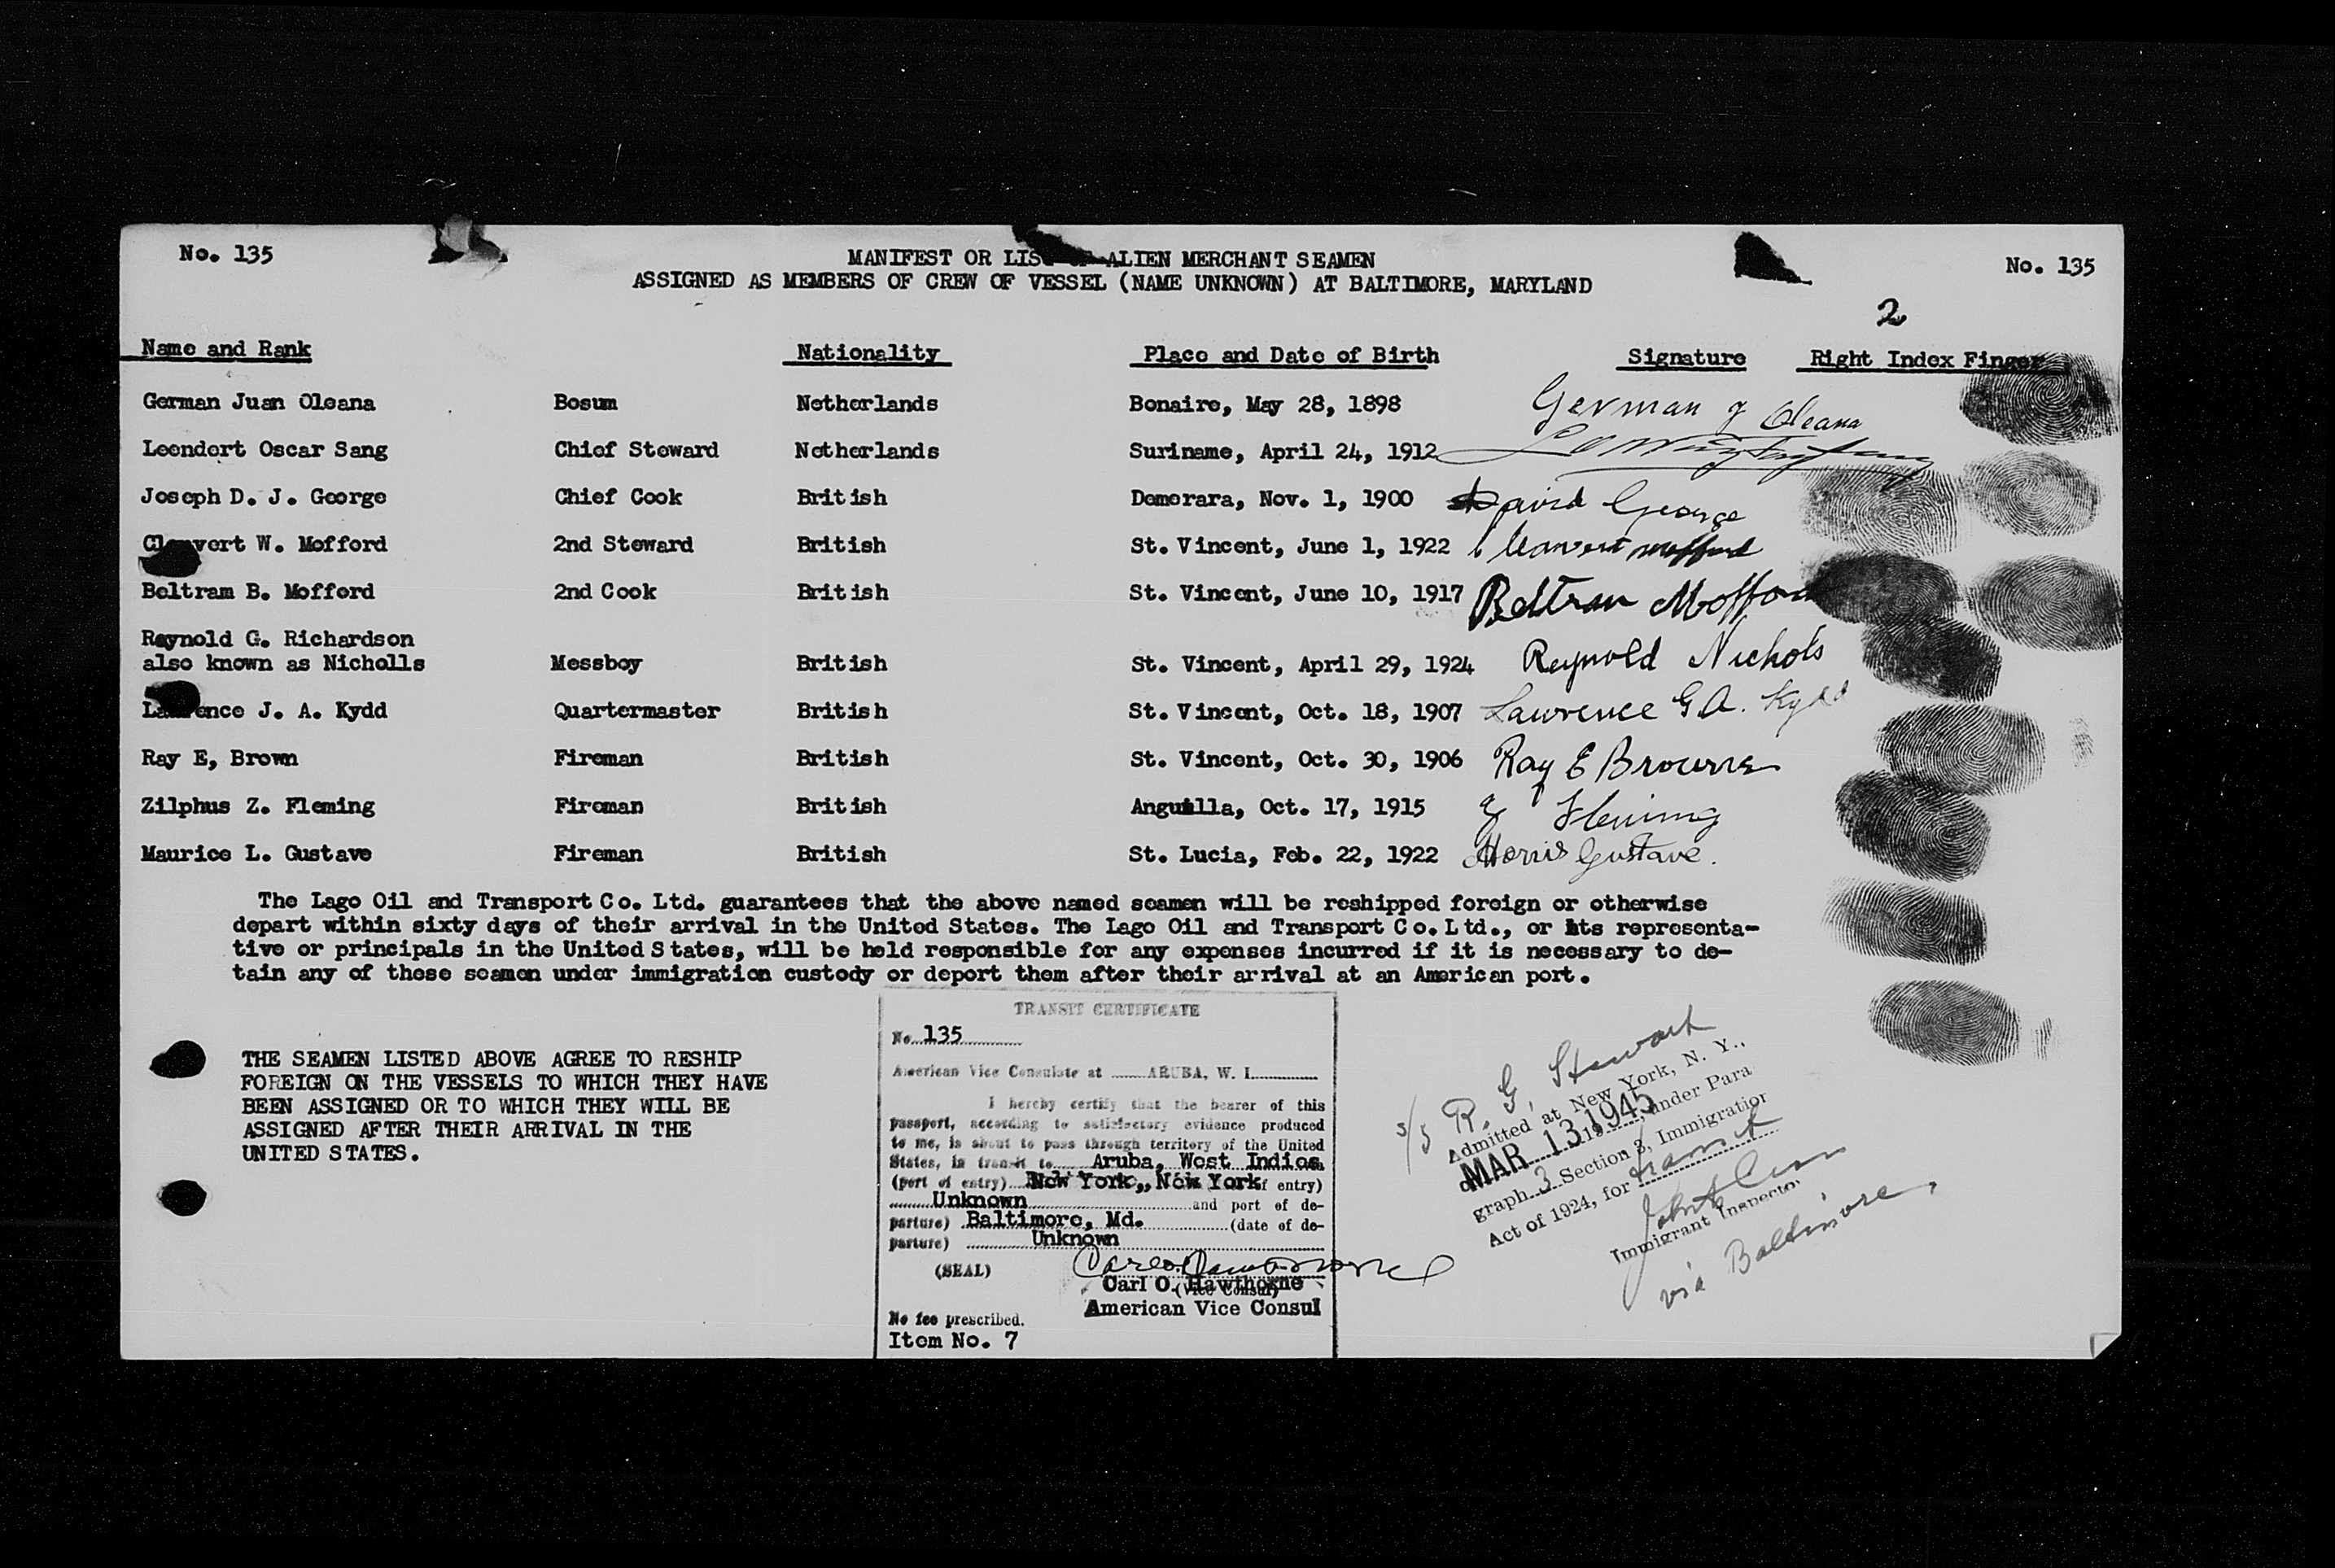 No. 135
MANIFEST OR LIST OF ALIEN MERCHANT SEAMEN
No. 135
ASSIGNED AS MEMBERS OF CREW OF VESSEL (NAME UNKNOWN) AT BALTIMORE, MARYLAND
2
Name and Rank Nationality Place and Date of Birth Signature Right Index Finger
German Juan Oleana Bosum Netherlands Bonaire, May 28, 1898 German J Oleana
Leendert Oscar Sang Chief Steward Netherlands Suriname, April 24, 1912
Joseph D. J. George Chief Cook British Demerara, Nov. 1, 1900 David George
Cleavert W. Mofford 2nd Steward British St. Vincent, June 1, 1922 Cleavert Mofford
Beltram B. Mofford 2nd Cook British St. Vincent, June 10, 1917 Beltran Mofford
Raynold G. Richardson
also known as Nicholls Messboy British St. Vincent, April 29, 1924 Reynold Nichols
Lawrence J. A. Kydd Quartermaster British St. Vincent, Oct. 18, 1907 Lawrence G. A. Kydd
Ray E, Brown Fireman British St. Vincent, Oct. 30, 1906 Ray E Browne
Zilphus Z. Fleming Fireman British Anguilla, Oct. 17, 1915 Z Fleming
Maurice L. Gustave Fireman British St. Lucia, Feb. 22, 1922 Morris Gustave.
The Lago Oil and Transport Co. Ltd. guarantees that the above named seamen will be reshipped foreign or otherwise
depart within sixty days of their arrival in the United States. The Lago Oil and Transport Co. Ltd., or its representa-
tive or principals in the United States, will be held responsible for any expenses incurred if it is necessary to de-
tain any of these seamen under immigration custody or deport them after their arrival at an American port.
THE SEAMEN LISTED ABOVE AGREE TO RESHIP
FOREIGN ON THE VESSELS TO WHICH THEY HAVE
BEEN ASSIGNED OR TO WHICH THEY WILL BE
ASSIGNED AFTER THEIR ARRIVAL IN THE
UNITED STATES.
TRANSIT CERTIFICATE
No. 135
American Vice Consulate at ARUBA, W. I.
I hereby certify that the bearer of this
passport, according to satisfactory evidence produced
to me, is about to pass through territory of the United
States, in transit to Aruba, West Indies
(port of entry) New York, New York of entry)
Unknown and port of de-
parture) Baltimore, Md. (date of de-
parture) Unknown
(SEAL)
Carl O. Hawthorne
(Vice Consul)
American Vice Consul
No fee prescribed.
Item No. 7
S/S R. G. Stewart
Admitted at New York, N. Y.,
on MAR 13 1945 19 , under Para
graph 3 Section 3, Immigration
Act of 1924, for transit
Immigrant Inspector
via Baltimore,